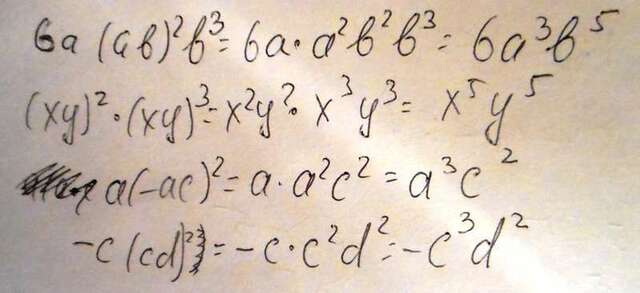 6a (ab)²b³= 6a·a²b²b³= 6a³b⁵
(xy)²·(xy)³=x²y²·x³y³= x⁵y⁵
a(-ac)²=a·a²c²=a³c²
-c(cd)²=-c·c²d²=-c³d²